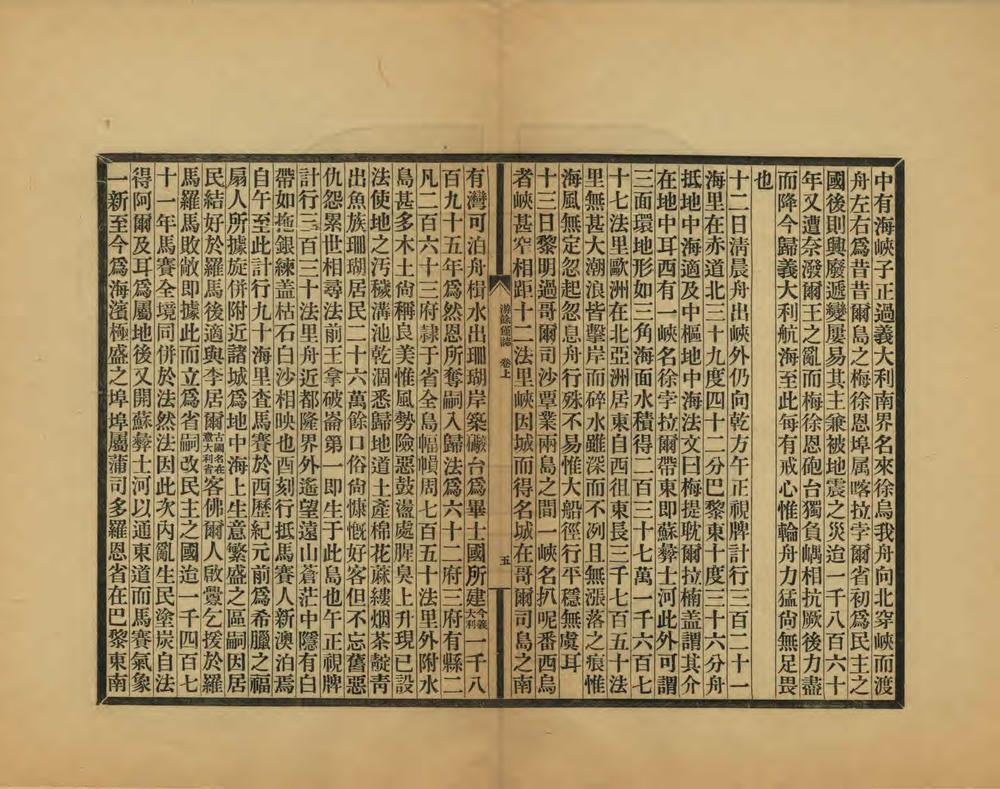 中有海峽子正過義大利南界名來徐烏我舟向北穿峽而渡
舟左右爲昔昔爾島之梅徐恩埠属喀拉孛爾省初爲民主之
國後則興廢遞變屢易其主兼被地震之災迨一千八百六十
年又遭奈潑爾王之亂而梅徐恩砲台獨負嵎相抗厥後力盡
而降今歸義大利航海至此每有戒心惟輪舟力猛尙無足畏
也
十二日淸晨舟出峽外仍向乾方午正視牌計行三百二十一
海里在赤道北三十九度四十二分巴黎東十度三十六分舟
抵地中海適及中樞地中海法文曰梅提耽爾拉楠盖謂其介
在地中耳西有一峽名徐孛拉爾帶東即蘇彝士河此外可謂
三面環地形如三角海面水積得二百三十七萬一千六百七
十七法里歐洲在北亞洲居東自西徂東長三千七百五十法
里無甚大潮浪皆擊岸而碎水雖深而不冽且無漲落之痕惟
海風無定忽起忽息舟行殊不易惟大船徑行平穩無虞耳
十三日黎明過哥爾司沙覃業兩島之間一峽名扒呢番西烏
者峽甚窄相距十二法里峽因城而得名城在哥爾司島之南
溯餘僅誌 卷上 五
有灣可泊舟楫水出珊瑚岸築礮台爲畢士國所建今義大利一千八
百九十五年爲然恩所奪嗣入歸法爲六十二府三府有縣二
凡二百六十三府隷于省全島幅幀周七百五十法里外附水
島甚多木土尙稱良美惟風勢險惡鼓盪處腥臭上升現已設
法使地之汚穢溝池乾涸悉歸地道土產棉花蔴縷烟茶靛靑
出魚族珊瑚居民二十六萬餘口俗尙慷慨好客但不忘舊惡
仇怨累世相尋法前王拿破崙第一即生于此島也午正視牌
計行三百三十法里舟近都隆界外遙望遠山蒼茫中隱有白
帶如拖銀練盖枯石白沙相映也酉刻行抵馬賽人新澳泊焉
自午至此計行九十海里查馬賽於西歷紀元前爲希臘之福
扇人所據旋併附近諸城爲地中海上生意繁盛之區嗣因居
民結好於羅馬後適與李居爾古國名在意大利省客佛爾人啟釁乞援於羅
馬羅馬敗敵即據此而立爲省嗣改民主之國迨一千四百七
十一年馬賽全境同併於法然法因此次內亂生民塗炭自法
得阿爾及耳爲屬地後又開蘇彝士河以通東道而馬賽氣象
一新至今爲海濱極盛之埠埠屬蒲司多羅恩省在巴黎東南